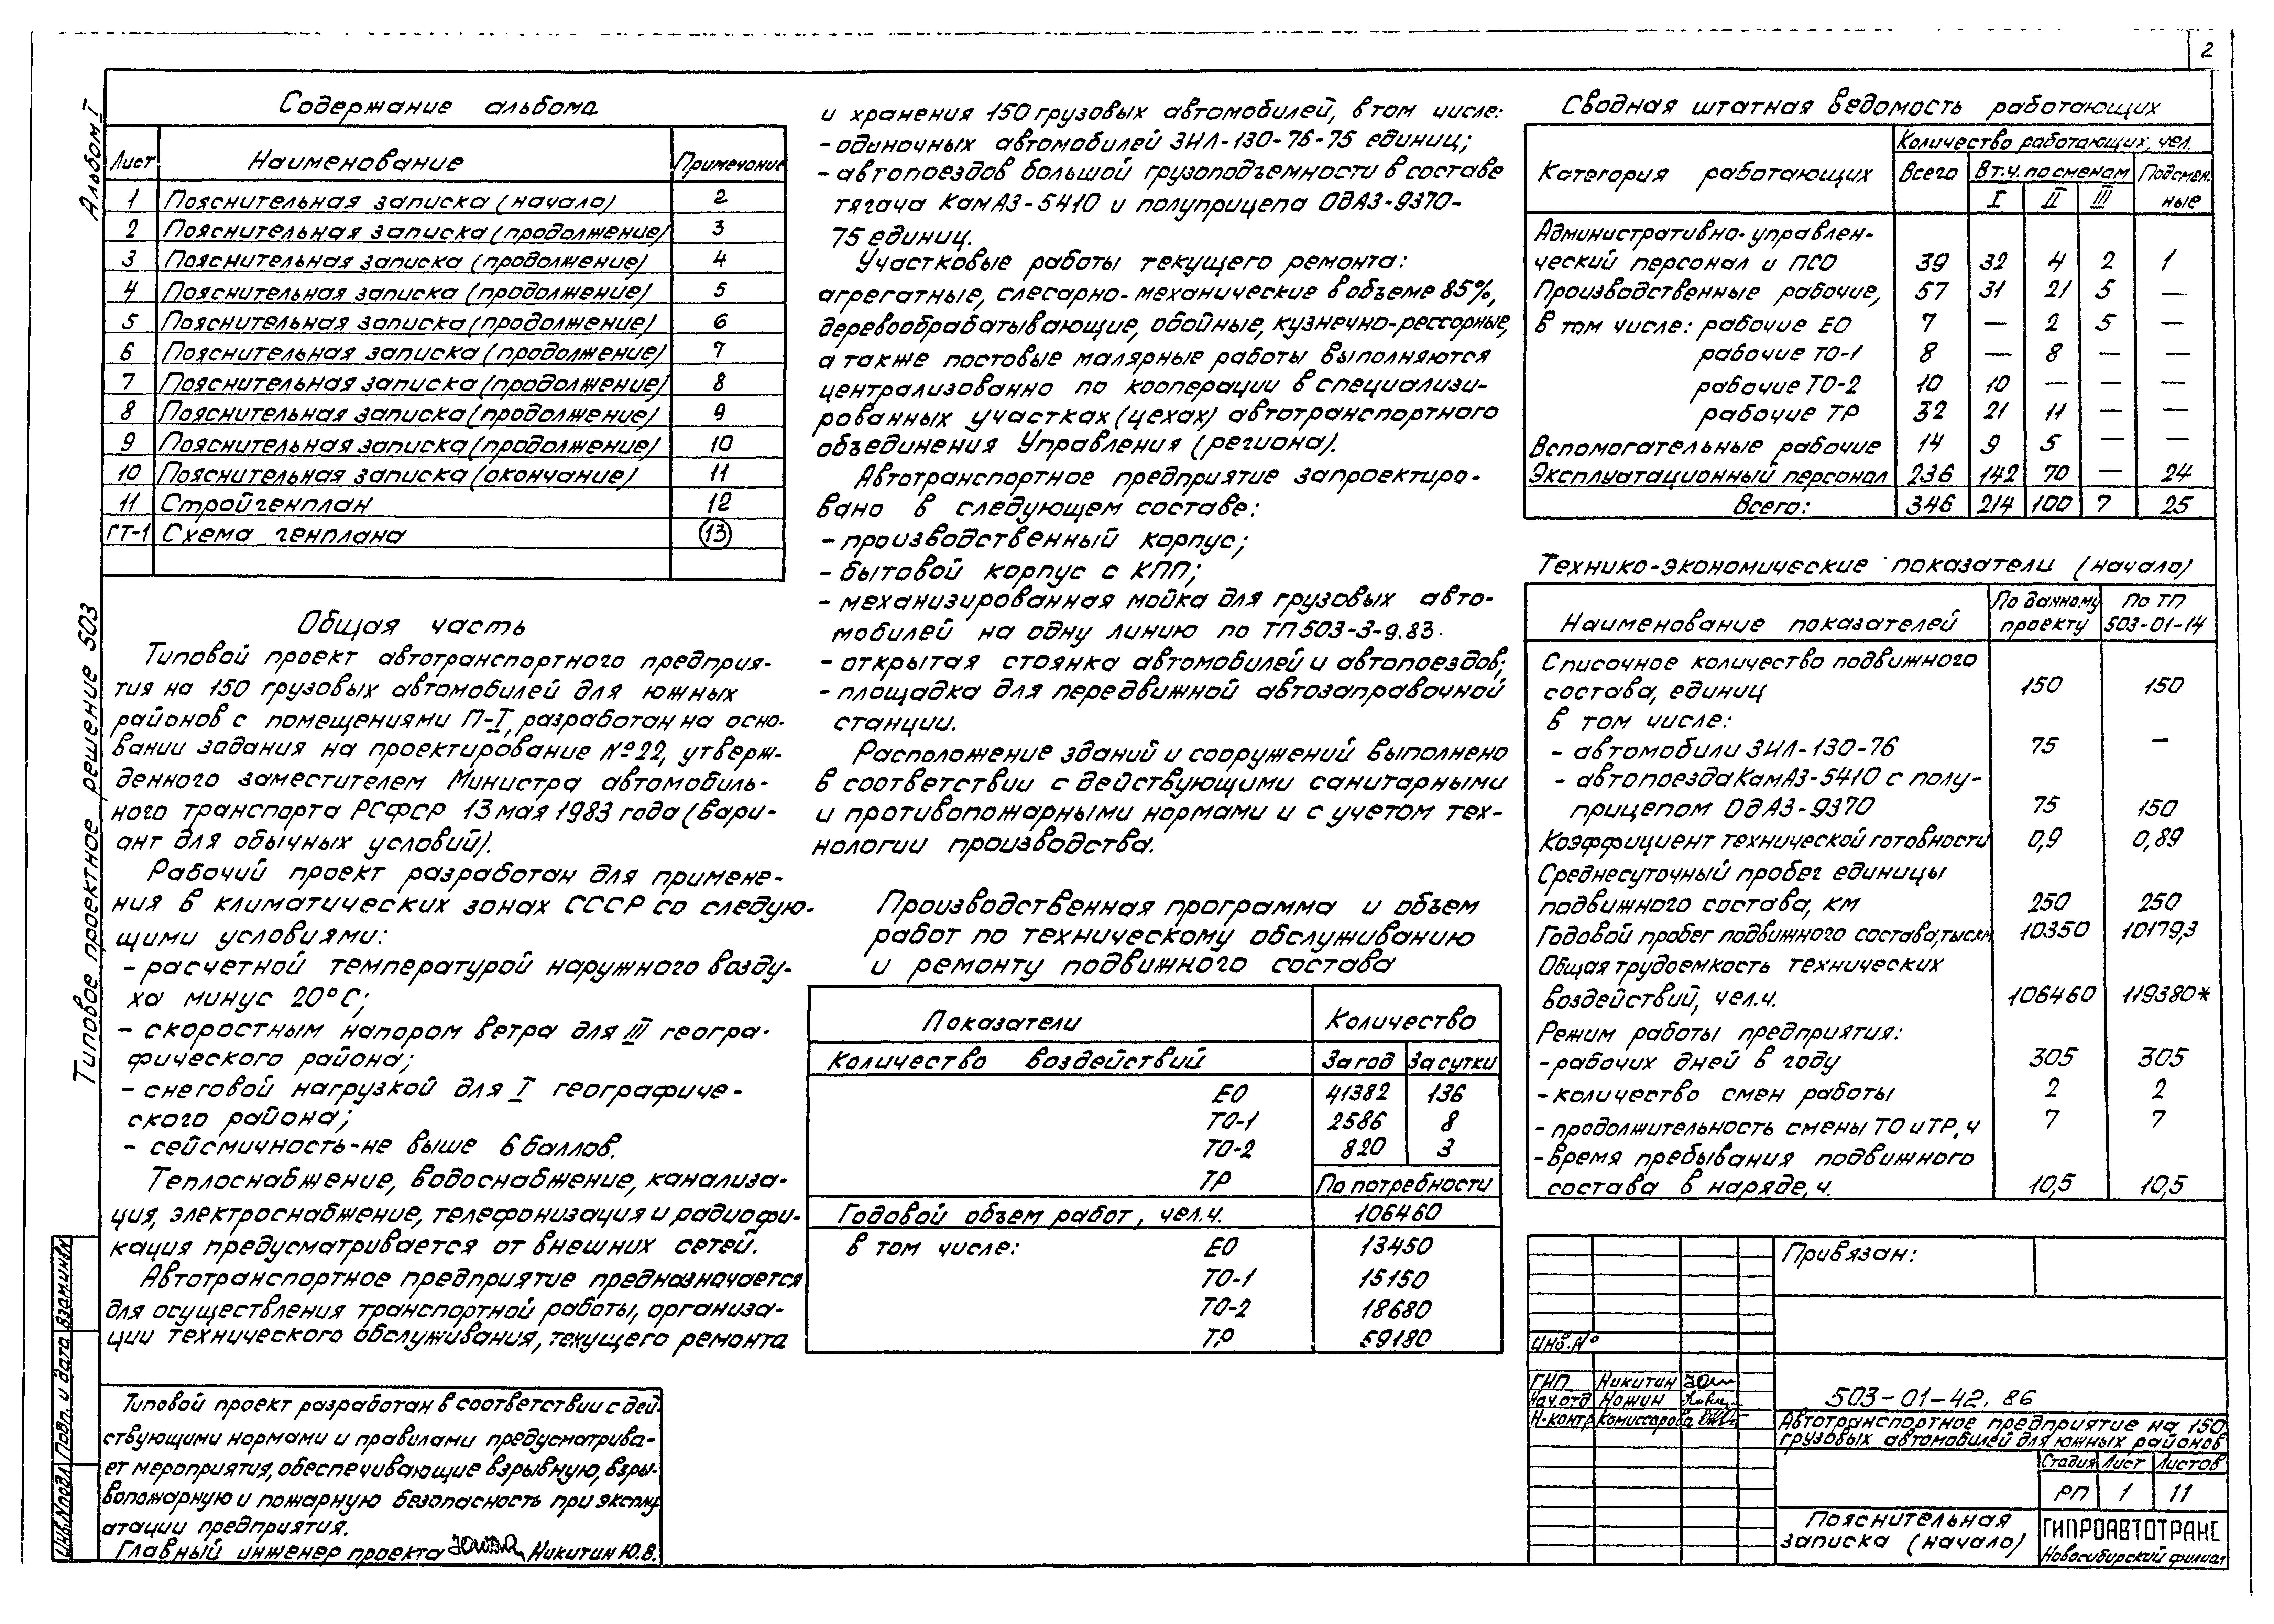 2
Альбом I
Типовое проектное решение 503
Содержание альбома
Лист Наименование Примечание
1 Пояснительная записка (начало) 2
2 Пояснительная записка (продолжение) 3
3 Пояснительная записка (продолжение) 4
4 Пояснительная записка (продолжение) 5
5 Пояснительная записка (продолжение) 6
6 Пояснительная записка (продолжение) 7
7 Пояснительная записка (продолжение) 8
8 Пояснительная записка (продолжение) 9
9 Пояснительная записка (продолжение) 10
10 Пояснительная записка (окончание) 11
11 Стройгенплан 12
ГТ-1 Схема генплана 13
Общая часть
Типовой проект автотранспортного предприя-
тия на 150 грузовых автомобилей для южных
районов с помещениями П-I, разработан на осно-
вании задания на проектирование №22, утверж-
денного заместителем Министра автомобиль-
ного транспорта РСФСР 13 мая 1983 года (вари-
ант для обычных условий).
Рабочий проект разработан для примене-
ния в климатических зонах СССР со следую-
щими условиями:
- расчетной температурой наружного возду-
ха минус 20°С;
- скоростным напором ветра для III геогра-
фического района;
- снеговой нагрузкой для I географиче-
ского района;
- сейсмичность-не выше 6 баллов.
Теплоснабжение, водоснабжение, канализа-
ция, электроснабжение, телефонизация и радиофи-
кация предусматривается от внешних сетей.
Автотранспортное предприятие предназначается
для осуществления транспортной работы, организа-
ции технического обслуживания, текущего ремонта
Типовой проект разработан в соответствии с дей-
ствующими нормами и правилами предусматрива-
ет мероприятия, обеспечивающие взрывную, взры-
вопожарную и пожарную безопасность при эксплу-
атации предприятия.
Главный инженер проекта Никитин Ю.В.
Инв.№подл Подп. и дата Взам.инв.№
и хранения 150 грузовых автомобилей, в том числе:
- одиночных автомобилей ЗИЛ-130-76-75 единиц;
- автопоездов большой грузоподъемности в составе
тягача КамАЗ-5410 и полуприцепа ОдАЗ-9370-
75 единиц.
Участковые работы текущего ремонта:
агрегатные, слесарно-механические в объеме 85%,
деревообрабатывающие, обойные, кузнечно-рессорные,
а также постовые малярные работы выполняются
централизованно по кооперации в специализи-
рованных участках (цехах) автотранспортного
объединения Управления (региона).
Автотранспортное предприятие запроектиро-
вано в следующем составе:
- производственный корпус;
- бытовой корпус с КПП;
- механизированная мойка для грузовых авто-
мобилей на одну линию по ТП 503-3-9.83.
- открытая стоянка автомобилей и автопоездов;
- площадка для передвижной автозаправочной
станции.
Расположение зданий и сооружений выполнено
в соответствии с действующими санитарными
и противопожарными нормами и с учетом тех-
нологии производства.
Производственная программа и объем
работ по техническому обслуживанию
и ремонту подвижного состава
Показатели Количество
Количество воздействий За год За сутки
ЕО 41382 136
ТО-1 2586 8
ТО-2 820 3
ТР По потребности
Годовой объем работ, чел.ч. 106460
в том числе: ЕО 13450
ТО-1 15150
ТО-2 18680
ТР 59180
Сводная штатная ведомость работающих
Категория работающих Количество работающих, чел.
Всего В т.ч. по сменам Подсмен-
I II III ные
Административно-управлен-
ческий персонал и ПСО 39 32 4 2 1
Производственные рабочие, 57 31 21 5 —
в том числе: рабочие ЕО 7 — 2 5 —
рабочие ТО-1 8 — 8 — —
рабочие ТО-2 10 10 — — —
рабочие ТР 32 21 11 — —
Вспомогательные рабочие 14 9 5 — —
Эксплуатационный персонал 236 142 70 — 24
Всего: 346 214 100 7 25
Технико-экономические показатели (начало)
Наименование показателей По данному проекту По ТП 503-01-14
Списочное количество подвижного
состава, единиц 150 150
в том числе:
- автомобили ЗИЛ-130-76 75 —
- автопоезда КамАЗ-5410 с полу-
прицепом ОдАЗ-9370 75 150
Коэффициент технической готовности 0,9 0,89
Среднесуточный пробег единицы
подвижного состава, км 250 250
Годовой пробег подвижного состава, тыс.км 10350 10179,3
Общая трудоемкость технических
воздействий, чел.ч. 106460 119380*
Режим работы предприятия:
- рабочих дней в году 305 305
- количество смен работы 2 2
- продолжительность смены ТО и ТР, ч 7 7
- время пребывания подвижного
состава в наряде, ч. 10,5 10,5
Привязан:
Инв.№
ГИП Никитин
Нач.отд Ножин
Н-контр Комиссарова
503-01-42.86
Автотранспортное предприятие на 150
грузовых автомобилей для южных районов
Стадия Лист Листов
РП 1 11
Пояснительная
записка (начало)
ГИПРОАВТОТРАНС
Новосибирский филиал